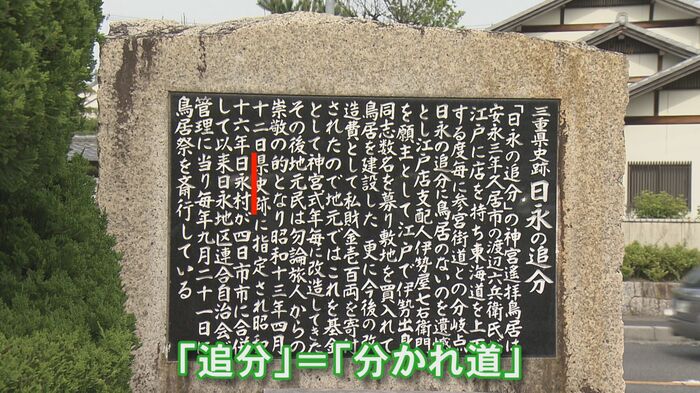 三重県史跡 日永の追分
「日永の追分」の神宮遥拝鳥居は
安永三年久居市の渡辺六兵衛氏
江戸に店を持ち東海道を上
する度毎に参宮街道との分岐点
日永の追分に鳥居のないのを遺
とし江戸店支配人伊勢屋七右衛門
を願主として江戸で伊勢出身
同志数名を募り敷地を買入れて
鳥居を建設した 更に今後の改
造費として私財金壱百両を寄
されたので地元ではこれを基金
として神宮式年毎に改造してきた
その後地元民は勿論旅人からの
崇敬の的となり昭和十三年四月
十二日県史跡に指定され昭
十六年日永村が四日市市に合併
して以来日永地区連合自治会
管理に当り毎年九月二十一日
鳥居祭を斎行している
「追分」＝「分かれ道」